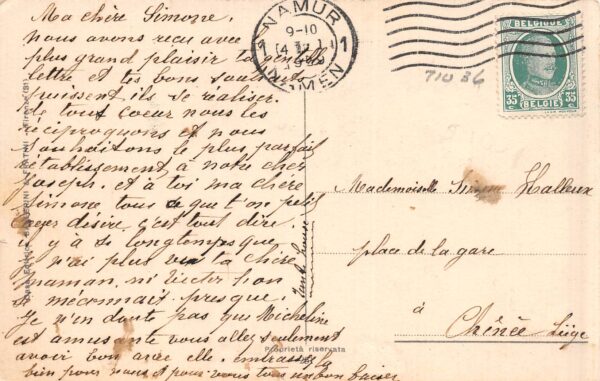 Ma chère Simone.
nous avons reçu avec
plus grand plaisir ta
lettre et tes bons souhaits
puissent ils se réaliser.
de tout coeur nous les
réciproquons et nous
souhaitons le plus parfait
rétablissement à notre cher
Joseph. et à toi ma chère
Simone tous ce que t'on petit
coeur désire c'est tout dire.
il y à si longtemps que
n'ai plus vu ta chère
maman, ni Victor
méconnait presque.
Je n'en doute pas que Micheline
est amusante vous allez seulement
avoir bon avec elle. embrassez la
bien pour nous et pour vous tous un bon baiser
NAMUR
1
9-10
1
NAMEN
BELGIQUE
35
35
BELGIE
71036
Mademoiselle Simone Halleux
place de la gare
à
Chênée Liège
Proprietà riservata